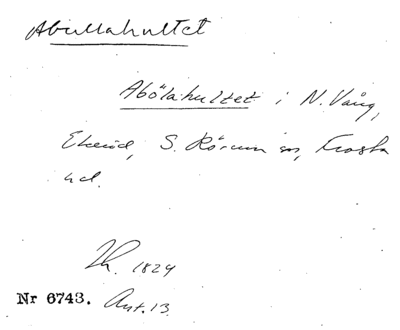 Abullahultet
Abölahultet i N. Vång,
Ekeröd, S. Rörum sn, Frosta
hd.
Lh. 1824
Nr 6743. Ant. 13